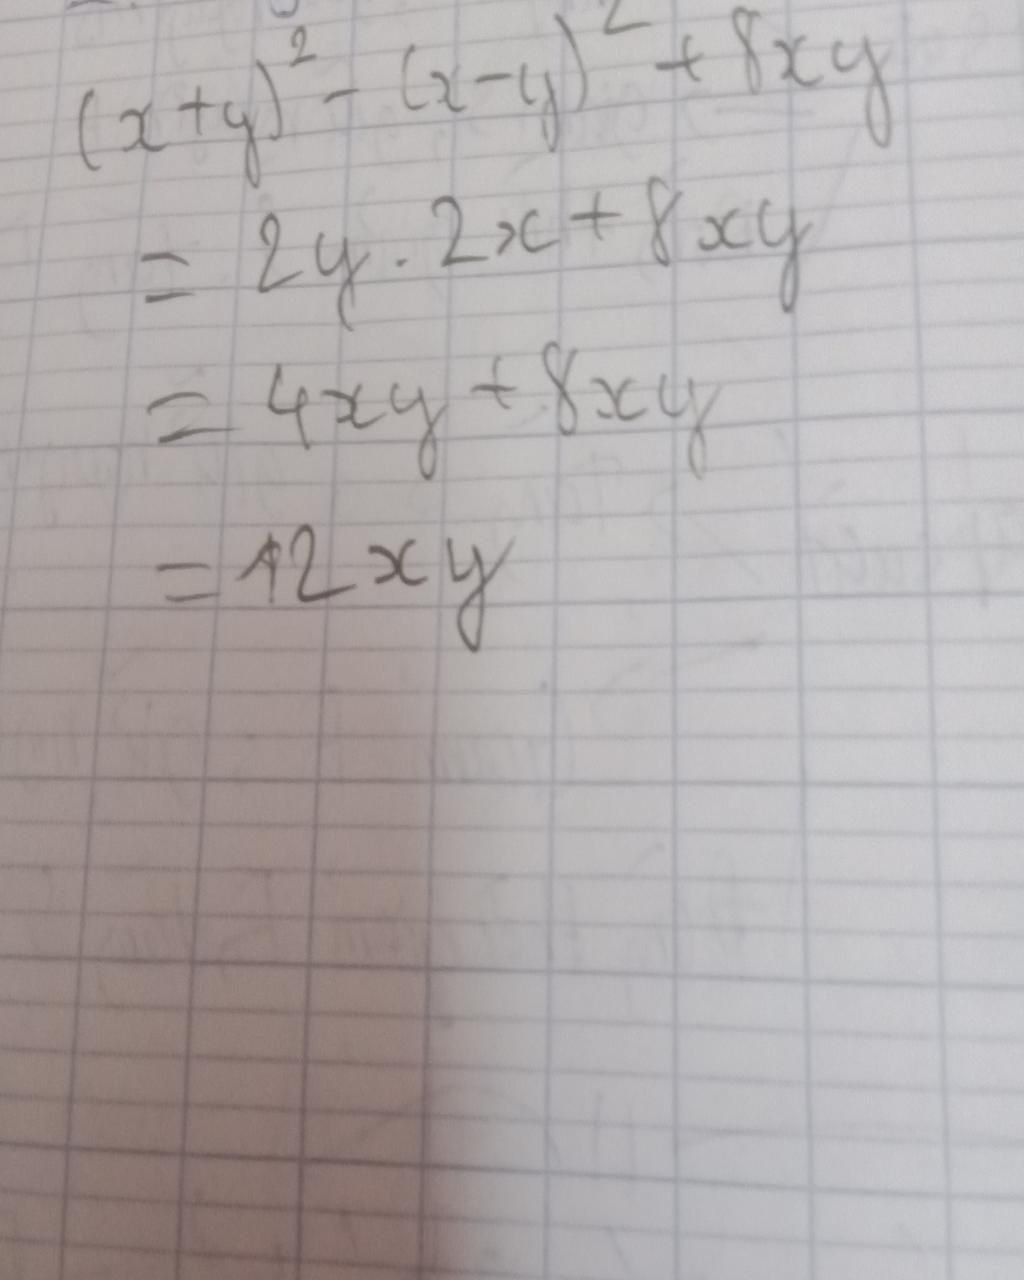 (x+y)² - (x-y)² + 8xy
= 2y . 2x + 8xy
= 4xy + 8xy
= 12xy